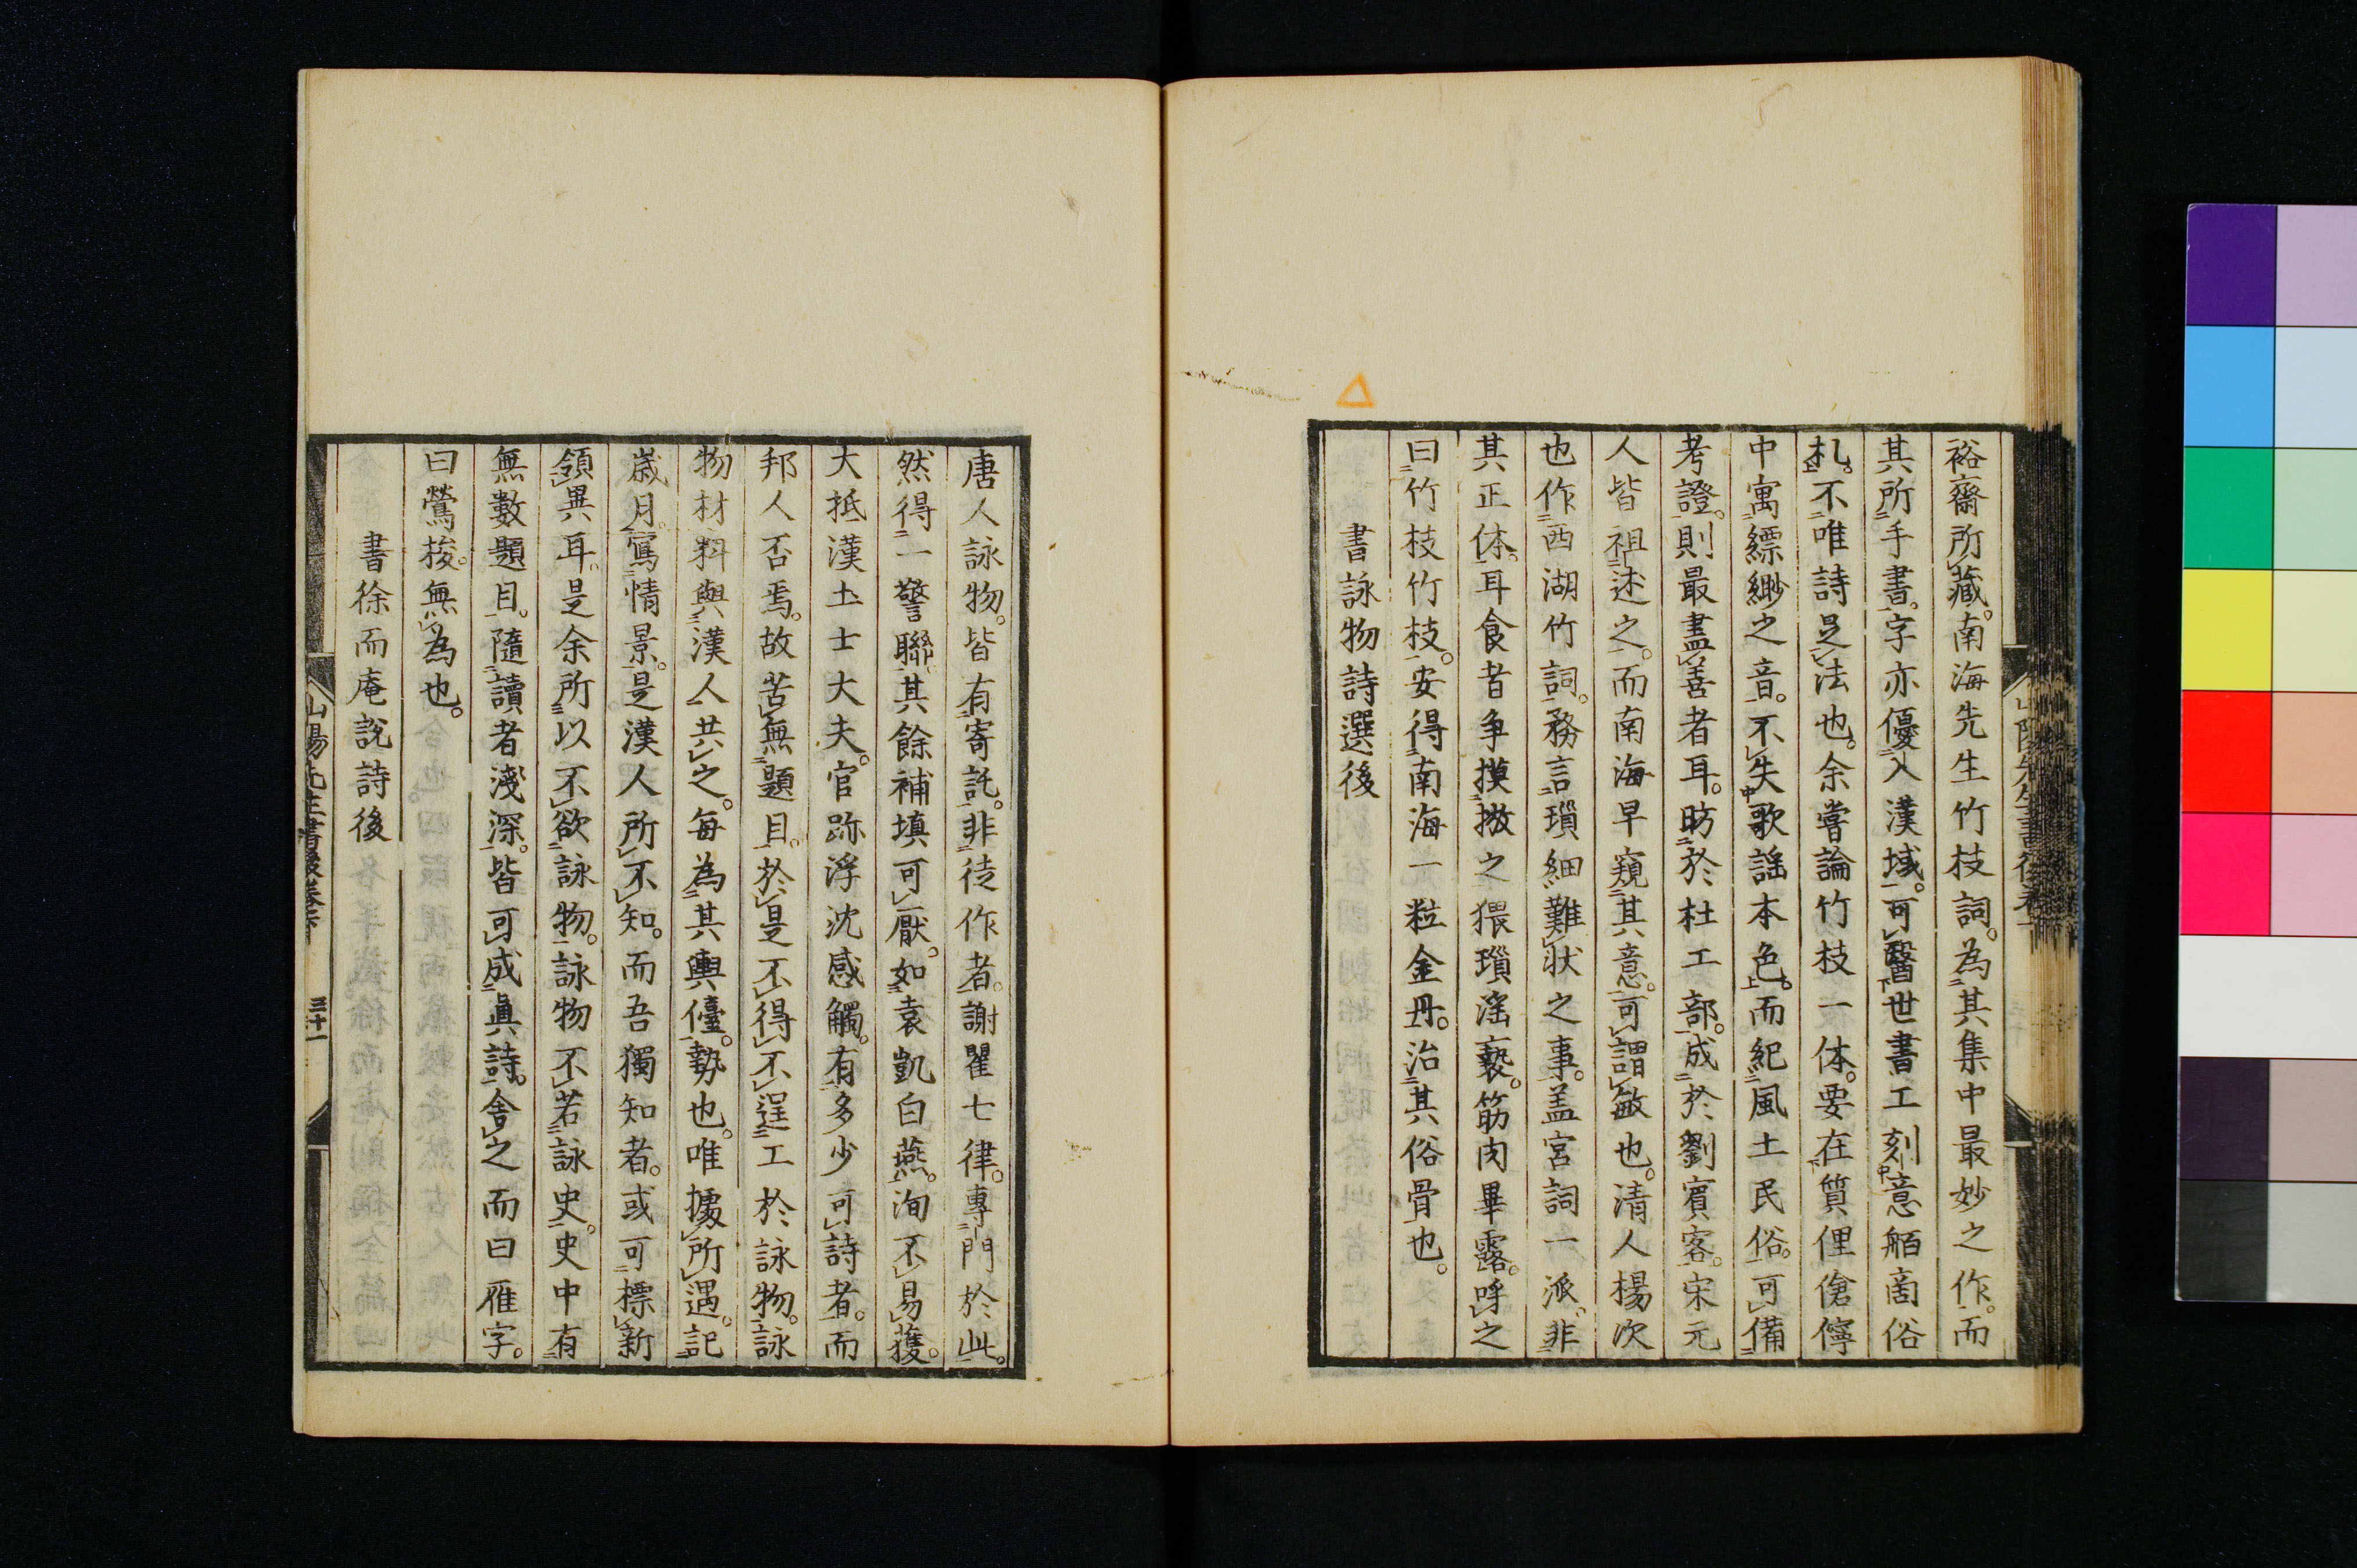 裕齋所藏。南海先生竹枝詞。為其集中最妙之作。而
其所手書。字亦優入漢域。可醫世書工刻意䑓啇俗
札。不唯詩足法也。余嘗論竹枝一体。要在質俚傖儜
中寓縹緲之音。不失歌謡本色。而紀風土民俗。可備
考證。則最盡善者耳。昉於杜工部。成於劉賓客。宋元
人皆祖述之。而南海早窺其意。可謂敏也。清人楊次
也作西湖竹詞。務言瑣細難狀之事。盖宮詞一派。非
其正体。耳食者争摸擬之猥瑣滛褻。筋肉畢露。呼之
曰竹枝竹枝。安得南海一粒金丹。治其俗骨也。
書詠物詩選後
唐人詠物。皆有寄託。非徒作者。謝瞿七律。專門於此。
然得一警聯。其餘補填可厭。如袁凱白燕。洵不易獲。
大抵漢土士大夫。官跡浮沈感觸。有多少可詩者。而
邦人否焉。故苦無題目。於是不得不逞工於詠物。詠
物材料與漢人共之。每為其輿儓。勢也。唯據所遇。記
歳月。寫情景。是漢人所不知。而吾獨知者。或可標新
領異耳。是余所以不欲詠物。詠物不若詠史。史中有
無數題目。隨讀者淺深。皆可成眞詩。舍之而曰雁字。
曰鶯梭。無為也。
書徐而庵説詩後
山陽先生書後卷下
三十一